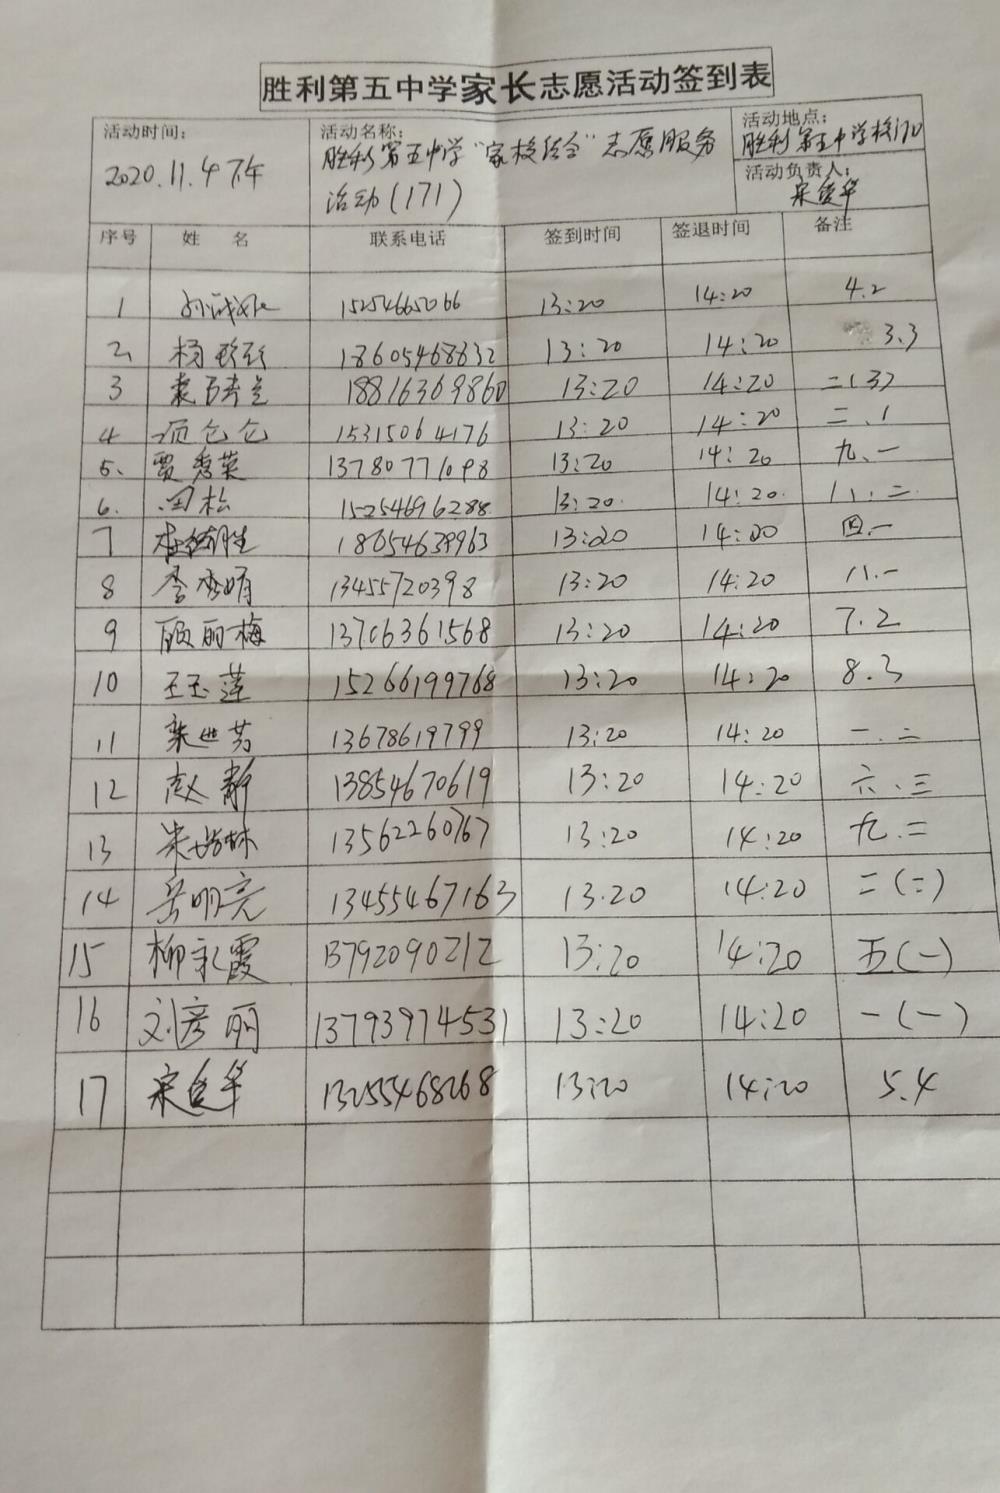 胜利第五中学家长志愿活动签到表
活动时间: 活动名称: 活动地点:
2020.11.4下午 胜利第五中学"家校结合"志愿服务 胜利第五中学校门口
活动(171) 活动负责人:
宋俊华
序号 姓 名 联系电话 签到时间 签退时间 备注
1 15254665066 13:20 14:20 4.2
2 杨 18605468632 13:20 14:20 3.3
3 袁 18816369860 13:20 14:20 二(3)
4 项仓仓 15315064176 13:20 14:20 二.1
5. 贾秀英 13780771098 13:20 14:20 九.一
6. 田松 15254696288 13:20. 14:20. 八.二
7 18654639963 13:20 14:20 四.一
8 李秀娟 13455720398 13:20 14:20 八.一
9 顾丽梅 13706361568 13:20 14:20 7.2
10 王玉莲 15266199768 13:20 14:20 8.3
11 栾世芳 13678619799 13:20 14:20 一.二
12 赵静 13854670619 13:20 14:20 六.三
13 林 13562260767 13:20 14:20 九.二
14 岳明亮 13455467163 13.20 14:20 二(二)
15 柳永霞 13792090212 13:20 14:20 五(一)
16 刘彦丽 13793974531 13:20 14:20 一(一)
17 宋俊华 13255468268 13:20 14:20 5.4